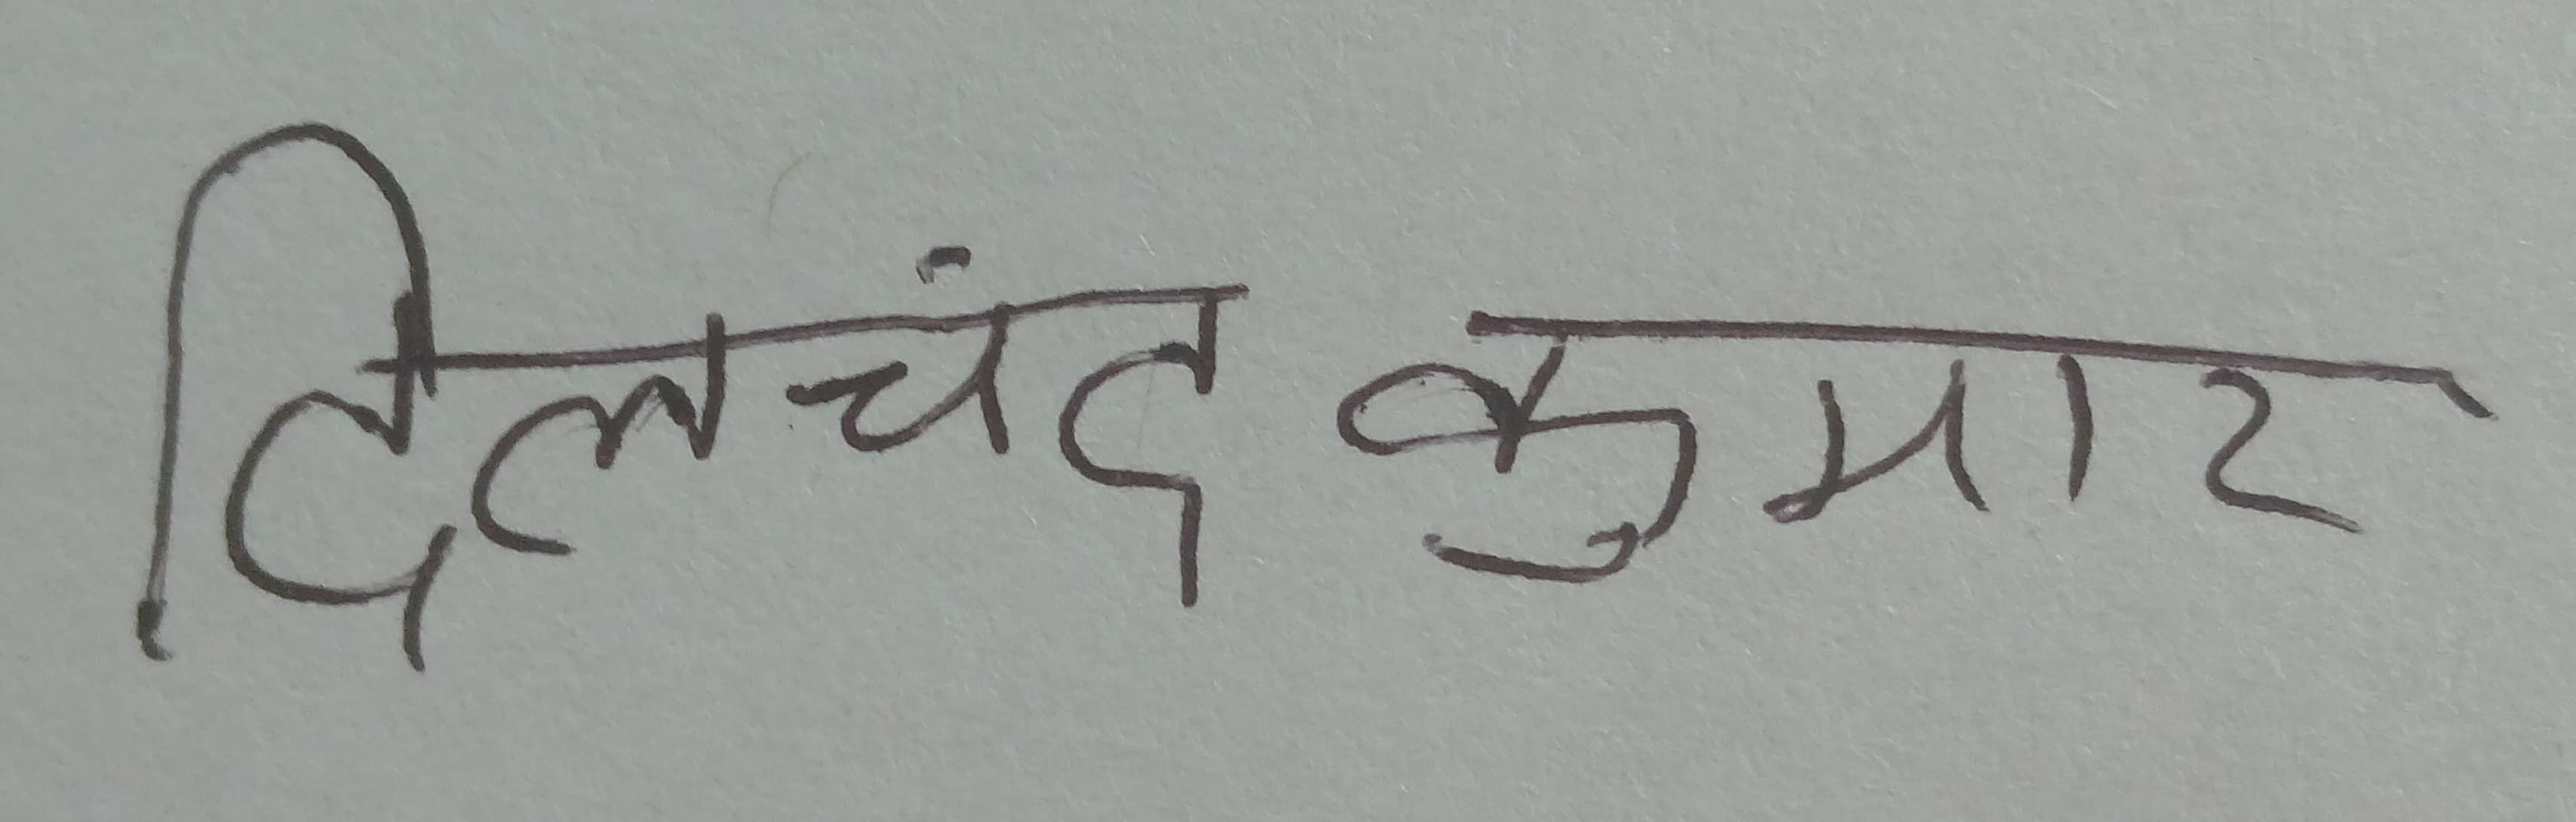 दिलचंद कुमार